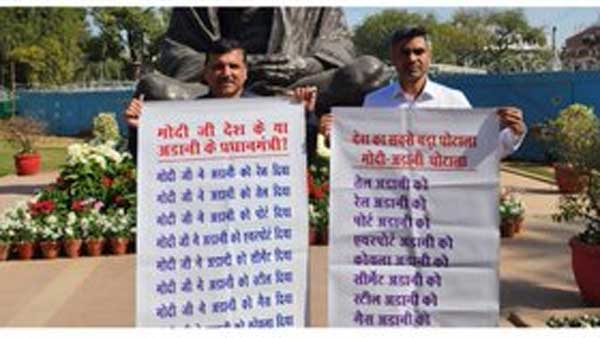 मोदी जी देश के या
अडानी के प्रधानमंत्री!
मोदी जी ने अडानी को रेल दिया
मोदी जी ने अडानी को तेल दिया
मोदी जी ने अडानी को पोर्ट दिया
मोदी जी ने अडानी को एयरपोर्ट दिया
मोदी जी ने अडानी को सीमेंट दिया
मोदी जी ने अडानी को स्टील दिया
मोदी जी ने अडानी को गैस दिया
मोदी जी ने अडानी को कोयला दिया
देश का सबसे बड़ा घोटाला
मोदी-अडानी घोटाला
तेल अडानी को
रेल अडानी को
पोर्ट अडानी को
एयरपोर्ट अडानी को
कोयला अडानी को
सीमेंट अडानी को
स्टील अडानी को
गैस अडानी को